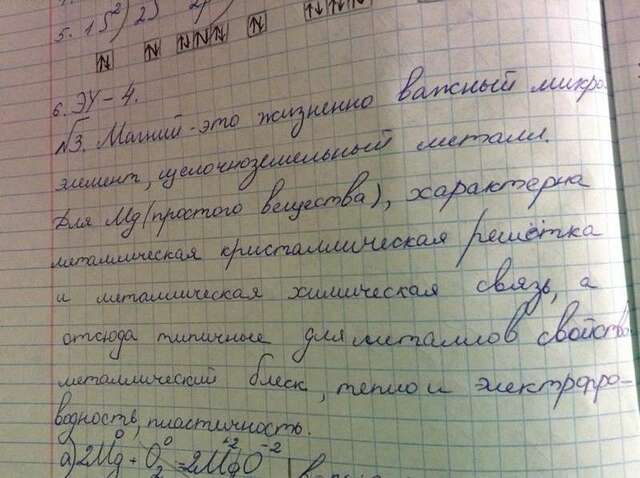 5. 1S²) 2S
↑↓ ↑↓ ↑↓ ↑↓ ↑↓ ↑↓ ↑↓ ↑↓ ↑↓
6. ЭУ - 4.
№3. Магний - это жизненно важный микро-
элемент, щелочноземельный металл.
Для Mg (простого вещества), характерна
металлическая кристаллическая решётка
и металлическая химическая связь, а
отсюда типичные для металлов свойств
металлический блеск, тепло и электропро-
водность, пластичность.
а) 2Mg⁰ + O₂⁰ = 2Mg⁺²O⁻²